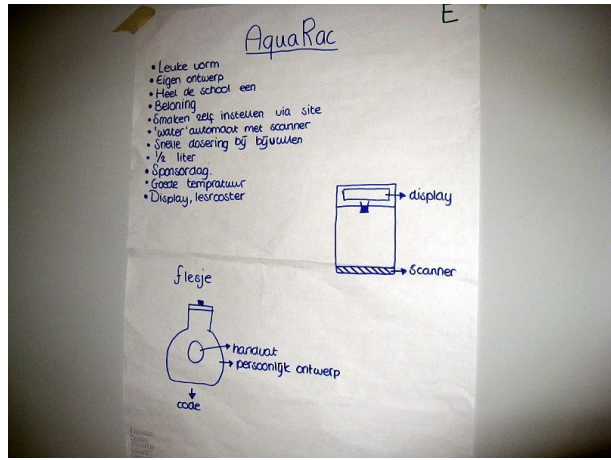 E
AquaRac
• Leuke vorm
• Eigen ontwerp
• Heel de school een
• Beloning
• Smaken zelf instellen via site
• 'water' automaat met scanner
• Snelle dosering bij bijvullen
• 1/2 liter
• Sponsordag.
• Goede tempratuur
• Display, lesrooster
display
scanner
flesje
handvat
persoonlijk ontwerp
code